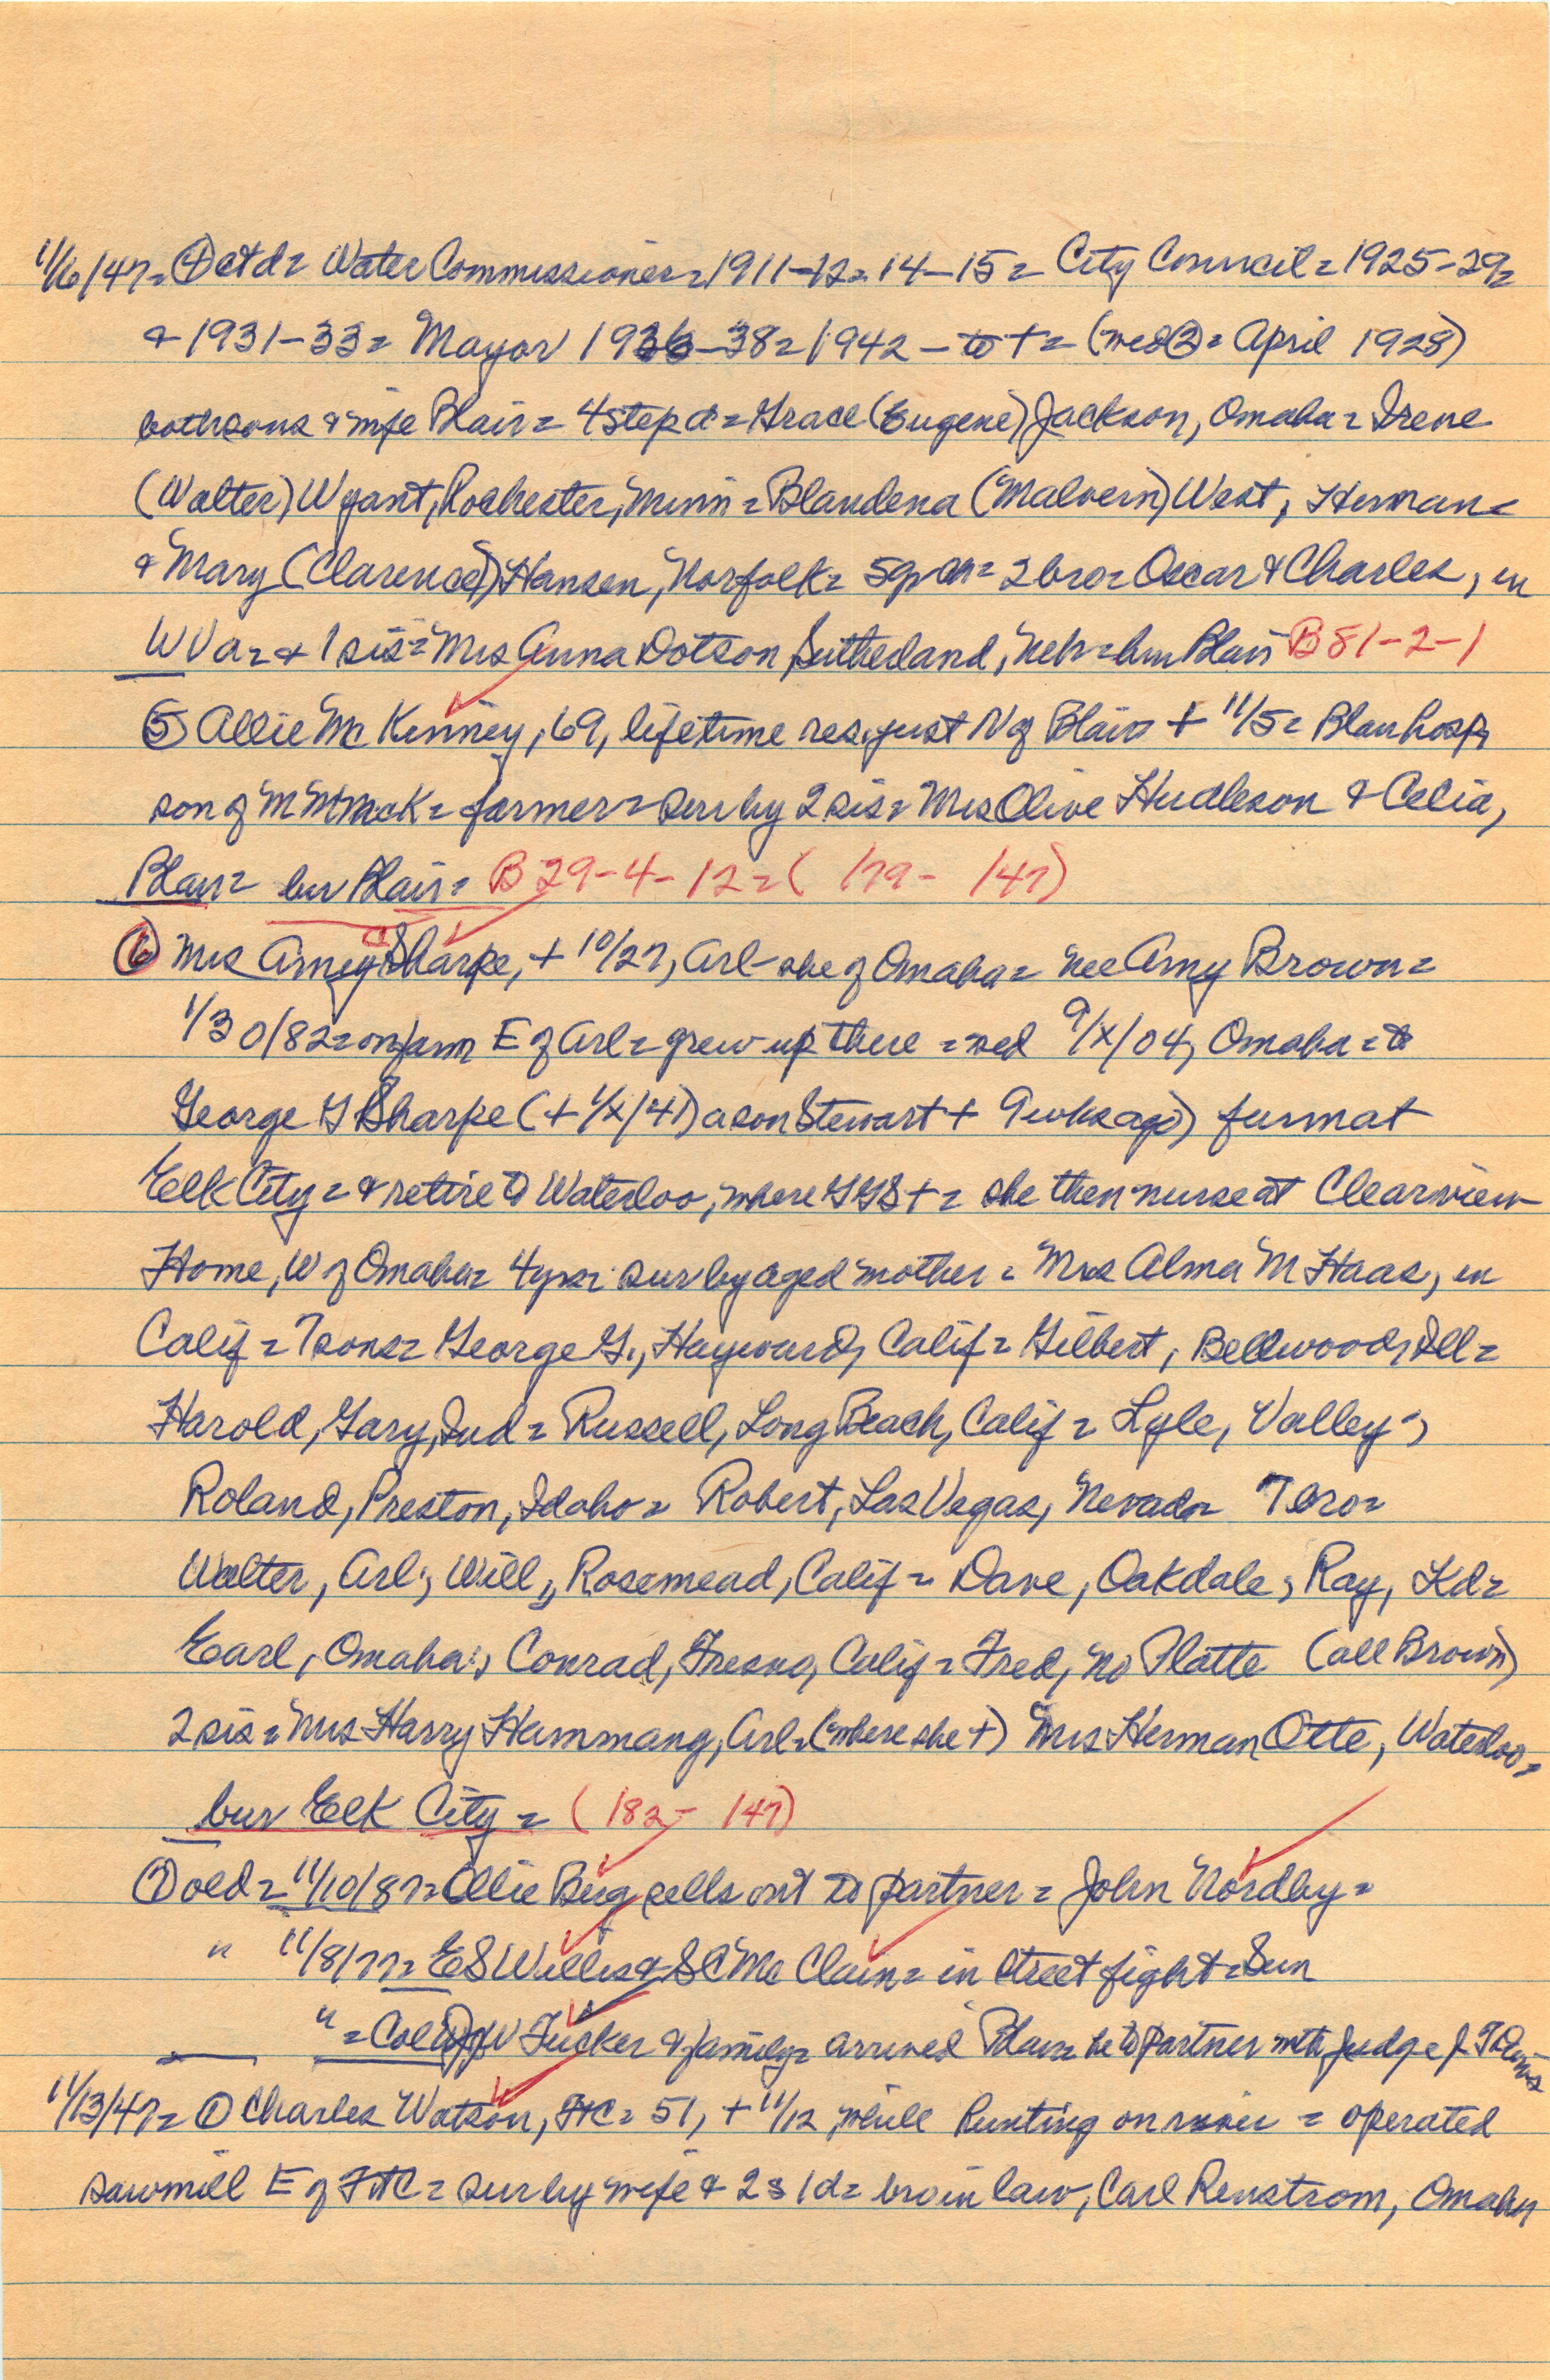 11/6/47= ④ ctd= Water Commissioner= 1911-12= 14-15= City Council= 1925-29=
& 1931-33= Mayor 1936-38= 1942- to += (med②= April 1928)
both sons & wife Blair= 4 step d= Grace (Eugene) Jackson, Omaha= Irene
(Walter) Wyant, Rochester, Minn= Blandena (Malvern) West, Herman=
& Mary (Clarence) Hansen, Norfolk= 5 gr ch= 2 bro= Oscar & Charles, in
W Va= & 1 sis= Mrs Anna Dotson, Sutherland, Neb= bur Blair B 81-2-1
⑤ Allie Mc Kinney, 69, lifetime res. just N of Blair + 11/5= Blair hosp
son of M M McK= farmer= sur by 2 sis= Mrs Olive Hudleson & Celia,
Blair= bur Blair= B 29-4-12= ( 179- 147)
⑥ Mrs Amey Sharpe, + 10/27, Arl- she of Omaha= nee Amy Brown=
1/30/82= on farm E of Arl= grew up there= med 9/x/04, Omaha= to
George G Sharpe (+ 1/x/41) a son Stewart + 9 wks ago) farm at
Elk City= & retire to Waterloo, where GGS += she then nurse at Clearview
Home, W of Omaha= 4 yrs= sur by aged mother= Mrs Alma M Haas, in
Calif= 7 sons= George G., Hayward, Calif= Gilbert, Bellwood, Ill=
Harold, Gary, Ind= Russell, Long Beach, Calif= Lyle, Valley;
Roland, Preston, Idaho= Robert, Las Vegas, Nevada= 7 bro=
Walter, Arl; Will, Rosemead, Calif= Dave, Oakdale; Ray, Kd=
Earl, Omaha; Conrad, Fresno, Calif= Fred, No Platte (all Brown)
2 sis= Mrs Harry Hammang, Arl= (where she +) Mrs Herman Otte, Waterloo,
bur Elk City= ( 182- 147)
⑦ old= 11/10/87= Ollie Bug sells out to partner= John Nordby=
" 11/8/77= E S Willis & S C Mc Clain= in street fight= Sun
"= Col W Tucker & family= arrived Blair= he to partner with Judge J T Davis
11/13/47= ① Charles Watson, FtC= 51, + 11/12 while hunting on river= operated
sawmill E of FtC= sur by wife & 2 s 1 d= bro in law, Carl Renstrom, Omaha